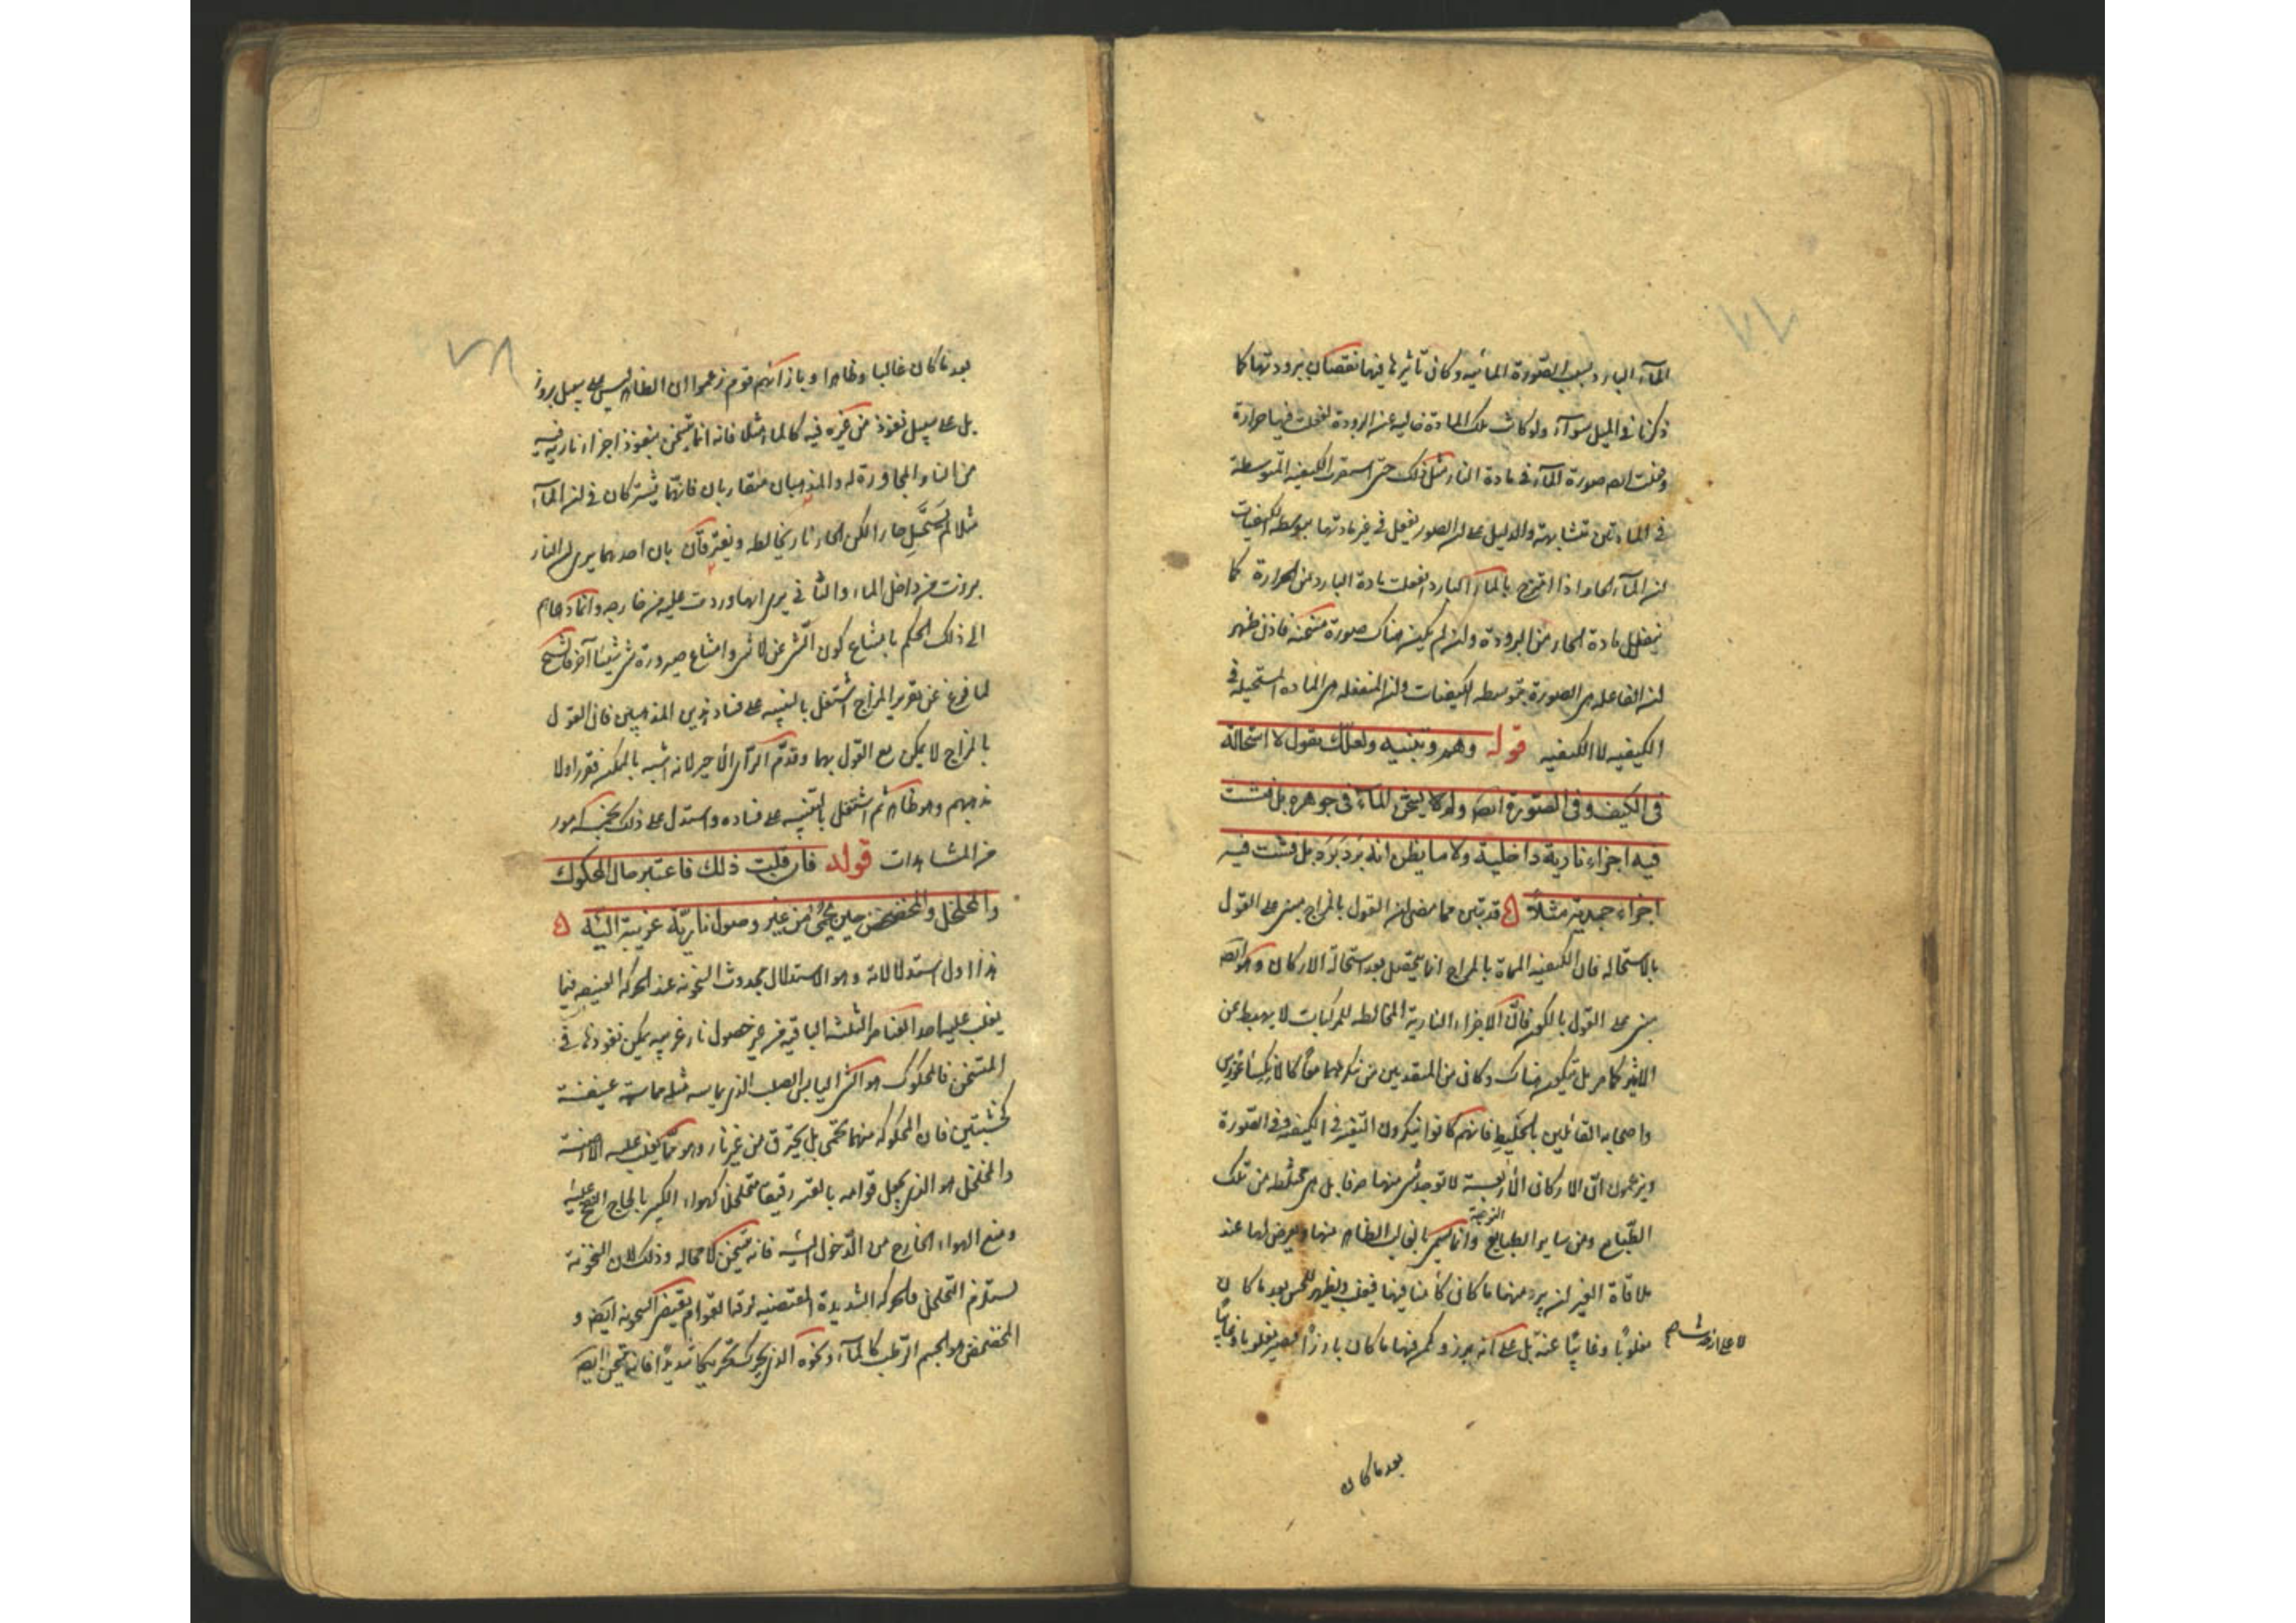 الماء البارد بسبب الصورة المائية وكان تأثيرها فيها نقصان برودتها كما
ذكرنا في الميل سواء ولو كانت تلك المادة خالية عن البرودة لفعلت فيها حرارة
وفعلت ايضا صورة الماء في مادة النار مثل ذلك حتى استقرت الكيفية المتوسطة
في المادتين متشابهة والدليل على ان الصور يفعل في غير مادتها بتوسط الكيفيات
ان الماء الحار اذا امتزج بالماء البارد انفعلت مادة البارد من الحرارة كما
ينفعل مادة الحار من البرودة وان لم يكن هناك صورة مسخنة فاذن ظهر
ان الفاعل هي الصورة بتوسط الكيفيات وان المنفعلة هي المادة المستحيلة في
الكيفية لا الكيفية قوله وهم وتنبيه ولعلك تقول لا استحالة
في الكيف وفي الصورة ايضا ولا يسخن الماء في جوهره بل فشت
فيه اجزاء نارية داخلية ولا ما يظن انه برد برد بل فشت فيه
اجزاء جمدية مثلا قد تبين مما مضى ان القول بالمزاج مبني على القول
بالاستحالة فان الكيفية المسماة بالمزاج انما يحصل بعد استحالة الاركان وهو ايضا
مبني على القول بالكون فان الاجزاء النارية المخالطة للمركبات لا يهبط عن
الاثير كما مر بل يتكون هناك وكان من المتقدمين من ينكرهما معا كانكساغورس
واصحابه القائلين بالخليط فانهم كانوا ينكرون التغير في الكيفية وفي الصورة
ويزعمون ان الاركان الاربعة لا توجد شي منها صرفا بل هي مختلطة من تلك
الطبايع ومن ساير الطبايع النوعية وانما يسمى بالغالب الظاهر منها ويعرض لها عند
ملاقاة الغير ان يبرز منها ما كان كامنا فيها فيغلب ويظهر للحس بعد ما كان
مغلوبا وغائبا عنه بل على انه برز وكمن فيها ما كان بارزا فيصير مغلوبا وغائبا
لا على انه حدث
بعد ما كان
بعد ما كان غالبا وظاهرا وبازائهم قوم زعموا ان الظاهر ليس على سبيل بروز
بل على سبيل نفوذ من غيره فيه كالماء مثلا فانه انما يتسخن بنفوذ اجزاء نارية فيه
من النار المجاورة له والمذهبان متقاربان فانهما يشتركان في ان الماء
مثلا لم يستحل حارا لكن الحار نار يخالطه ويفترقان بان احدهما يرى ان النار
برزت من داخل الماء والثاني يرى انها وردت عليه من خارجه وانما دعاهم
الى ذلك الحكم بامتناع كون الشي عن لا شي وامتناع صيرورة شي شيئا آخر فالشيخ
لما فرغ عن تقرير المزاج اشتغل بالتنبيه على فساد هذين المذهبين فان القول
بالمزاج لا يمكن مع القول بهما وقدم الرأي الاخير لانه اشبه بالممكن فقرر اولا
مذهبهم وهو ظاهر ثم اشتغل بالتنبيه على فساده واستدل على ذلك بخمسة امور
من المشاهدات قوله فان قلت ذلك فاعتبر حال المحكوك
والمخلخل والمخضخض حين يحمى من غير وصول نارية غريبة اليه
هذا اول استدلالاته وهو الاستدلال بحدوث السخونة عند الحركة العنيفة فيما
يغلب عليه احد العناصر الثلثة الباقية من غير حصول نار غريبة يمكن نفوذها في
المتسخن فالمحكوك هو الشي اليابس الصلب الذي يماسه مثله مماسة عنيفة
كخشبتين فان المحكوكة منهما تحمى بل يحترق من غير نار وهو مما يغلب عليه الارضية
والمخلخل هو الذي يجعل قوامه بالقسر رقيقا متخلخلا كهواء الكير بالحاح النفخ عليه
ومنع الهواء الخارج من الدخول اليه فانه يتسخن لا محالة وذلك لان السخونة
يستلزم التخلخل فالحركة الشديدة المقتضية لرقة القوام يقتضي السخونة ايضا و
المخضخض هو الجسم الرطب كالماء ونحوه الذي يحرك تحريكا شديدا فانه يتسخن ايضا